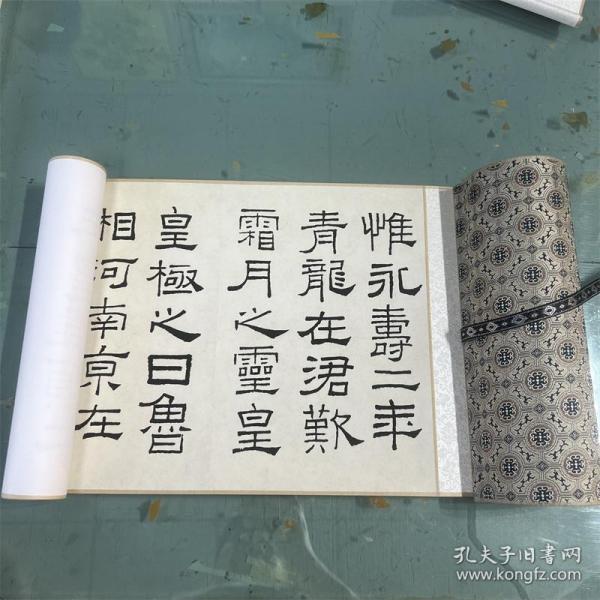 惟永壽二年
青龍在涒歎
霜月之靈皇
皇極之日魯
相河南京在
孔夫子旧书网
www.kongfz.com